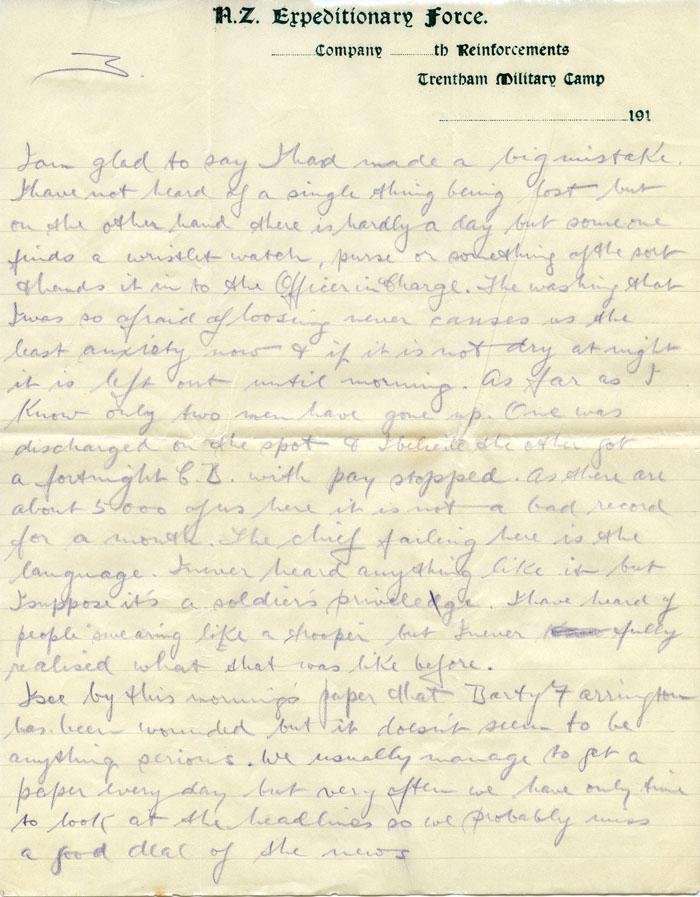 N.Z. Expeditionary Force.
Company th Reinforcements
Trentham Military Camp
191
3.
I am glad to say I had made a big mistake.
I have not heard of a single thing being lost but
on the other hand there is hardly a day but someone
finds a wristlet watch, purse or something of the sort
& hands it in to the Officer in Charge. The washing that
I was so afraid of loosing never causes us the
least anxiety now & if it is not dry at night
it is left out until morning. As far as I
know only two men have gone up. One was
discharged on the spot & I believe the other got
a fortnight C.B. with pay stopped. As there are
about 5000 of us here it is not a bad record
for a month. The chief failing here is the
language. I never heard anything like it but
I suppose it's a soldier's priveledge. I have heard of
people swearing like a trooper but I never fully
realised what that was like before.
I see by this morning's paper that Barty Farrington
has been wounded but it doesn't seem to be
anything serious. We usually manage to get a
paper every day but very often we have only time
to look at the headlines so we probably miss
a good deal of the news